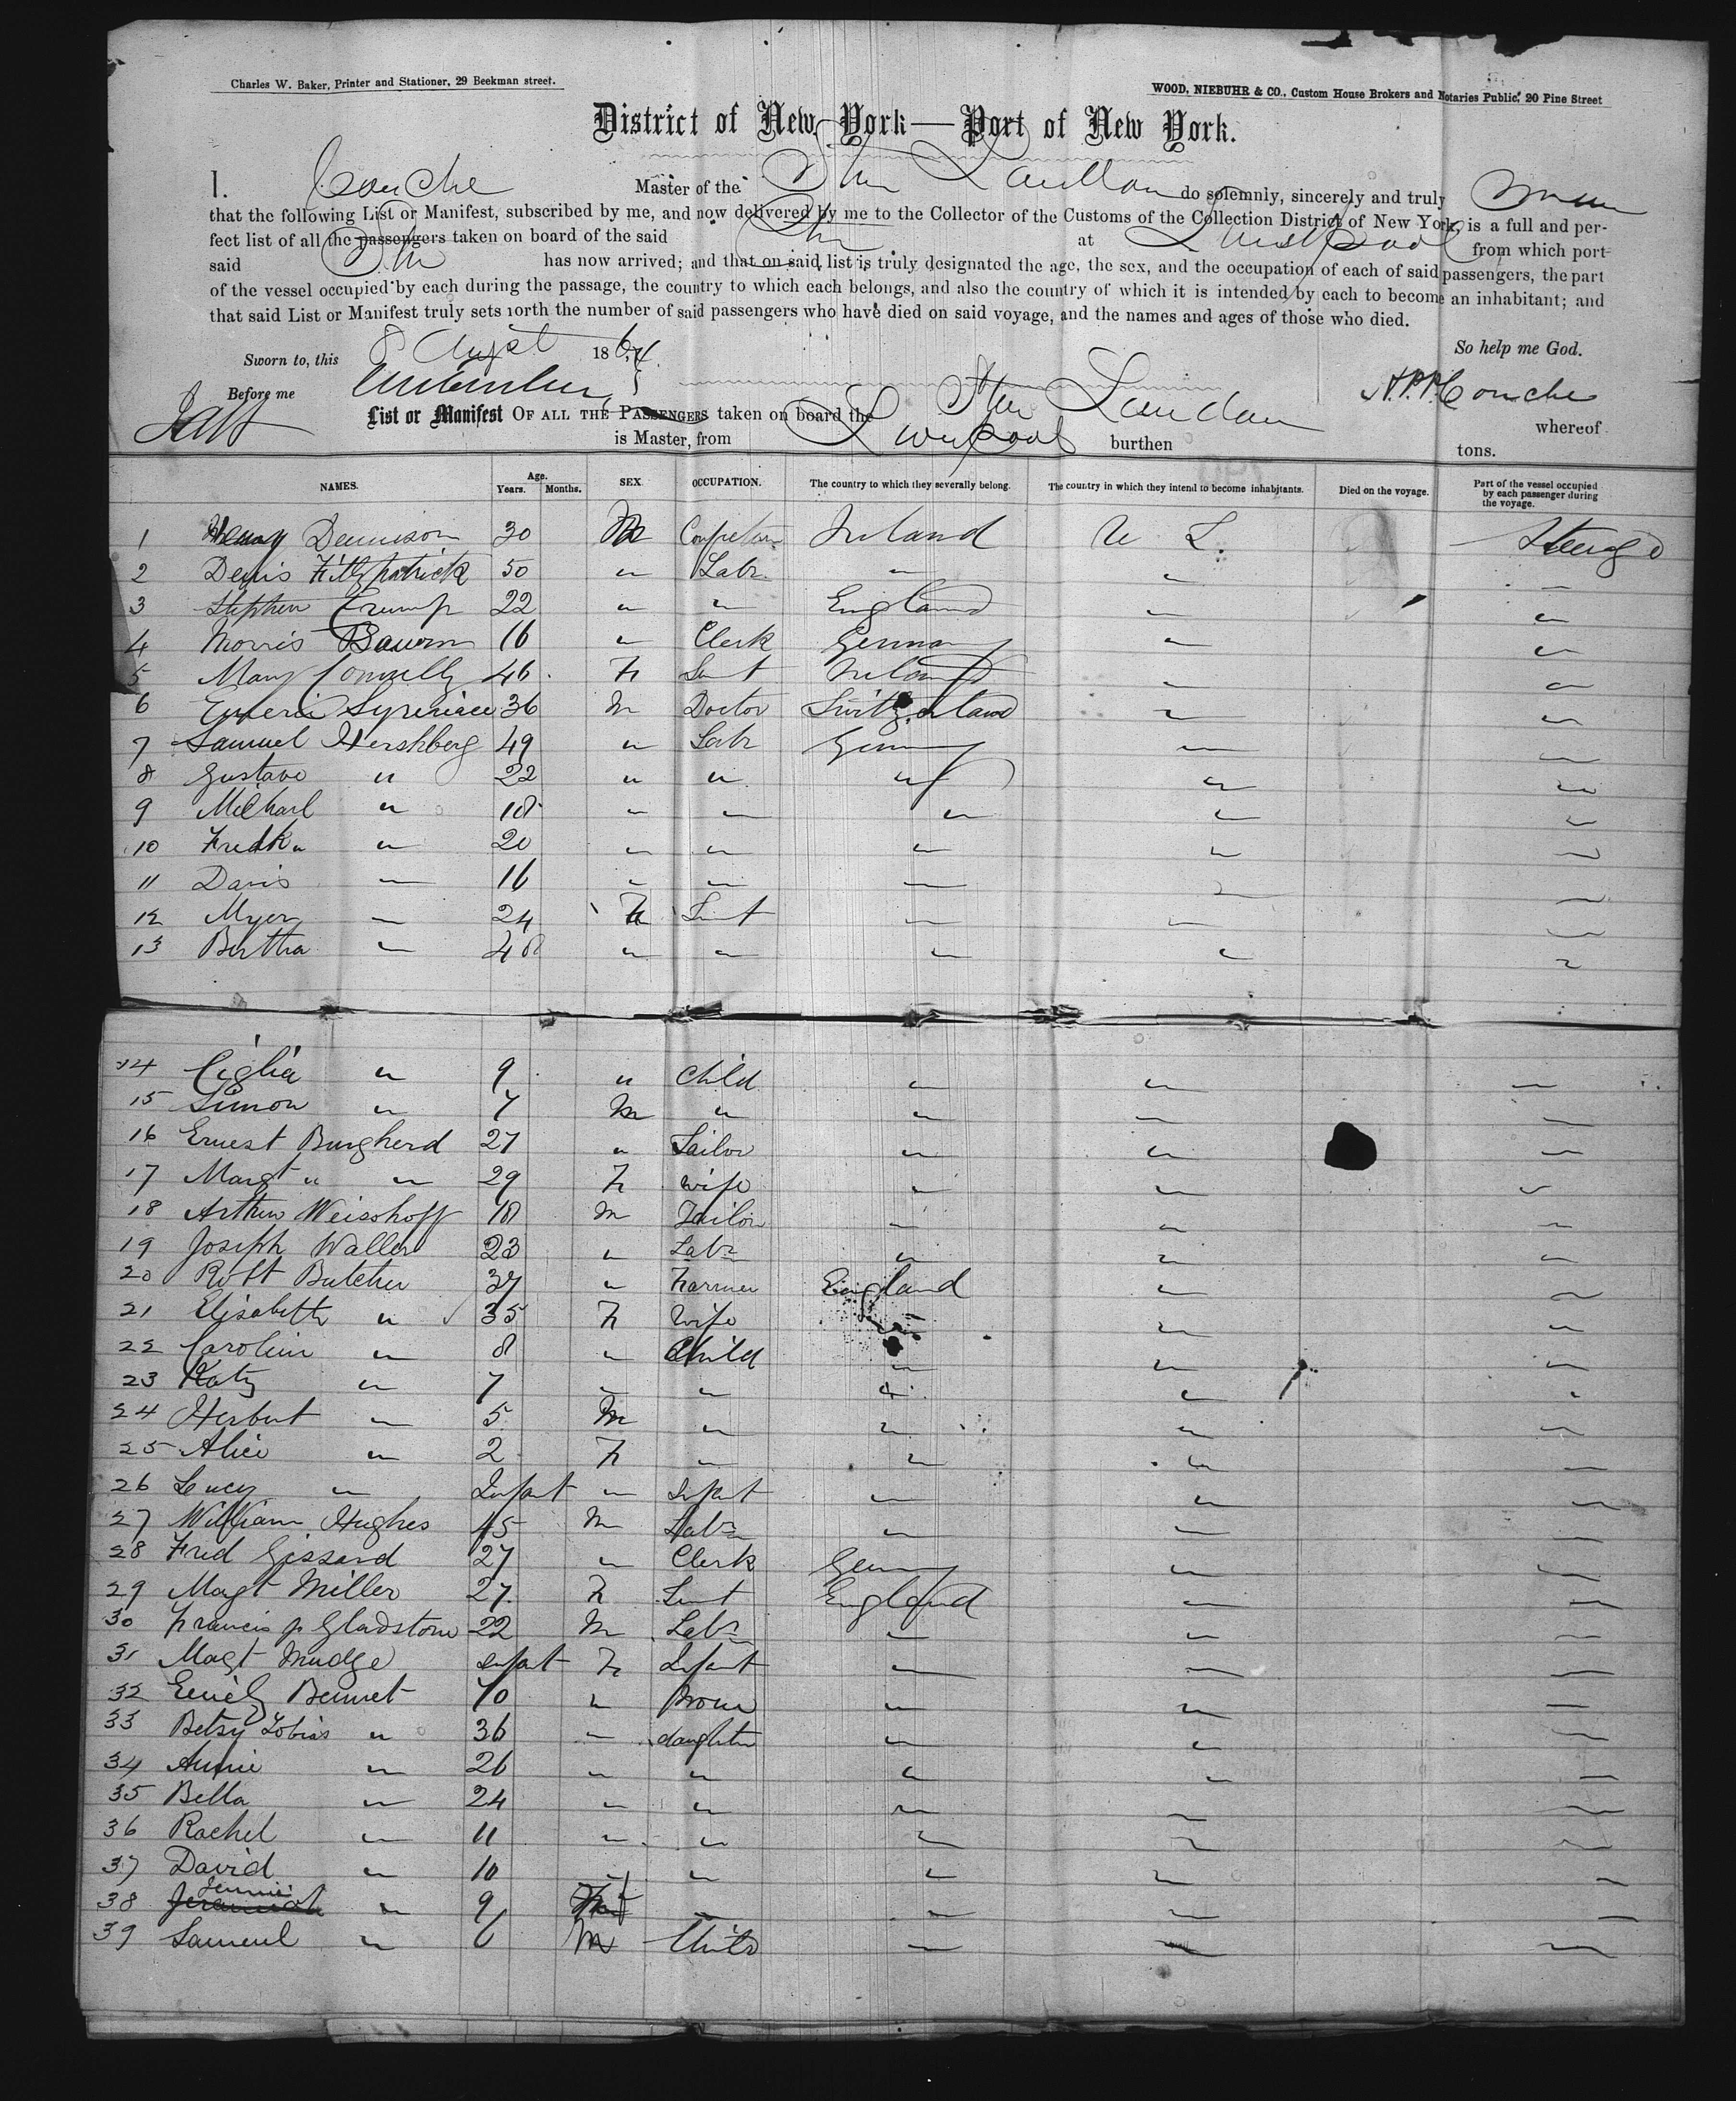 Charles W. Baker, Printer and Stationer, 29 Beekman street.
WOOD, NIEBUHR & CO., Custom House Brokers and Notaries Public, 20 Pine Street
District of New York—Port of New York.
I. Couche Master of the Str do solemnly, sincerely and truly swear
that the following List or Manifest, subscribed by me, and now delivered by me to the Collector of the Customs of the Collection District of New York, is a full and per-
fect list of all the passengers taken on board of the said Str at Liverpool from which port
said Str has now arrived; and that on said list is truly designated the age, the sex, and the occupation of each of said passengers, the part
of the vessel occupied by each during the passage, the country to which each belongs, and also the country of which it is intended by each to become an inhabitant; and
that said List or Manifest truly sets forth the number of said passengers who have died on said voyage, and the names and ages of those who died.
Sworn to, this 8 Augst 18
So help me God.
Before me
Couche
List or Manifest OF ALL THE PASSENGERS taken on board the Str whereof
is Master, from Liverpool burthen tons.
NAMES. Age. Years. Months. SEX. OCCUPATION. The country to which they severally belong. The country in which they intend to become inhabitants. Died on the voyage. Part of the vessel occupied by each passenger during the voyage.
1 Dennison 30 M Ireland U S. Steerage
2 Denis Fitzpatrick 50 " Labr. " " "
3 Stephen Crump 22 " " England " "
4 Morris 16 " Clerk Germany " "
5 Mary Connelly 46 F Sevt Ireland " "
6 36 M Doctor Switzerland " "
7 Samuel Hershberg 49 " Labr Germy " "
8 Gustave " 22 " " " " "
9 Michael " 18 " " " " "
10 Fredk " 20 " " " " "
11 Davis " 16 " " " " "
12 Myer " 24 F Sevt " " "
13 Bertha " 48 " " " " "
14 " 9 " Child " " "
15 Simon " 7 M " " " "
16 Ernest Burgherd 27 " " " "
17 Margt " " 29 F wife " " "
18 Arthur Weisshoff 18 M Tailor " " "
19 Joseph Waller 23 " Labr " " "
20 Robt Butcher 37 " Farmer England " "
21 Elisabeth " 35 F Wife " " "
22 Caroline " 8 " Child " " "
23 Katy " 7 " " " " "
24 Herbert " 5 M " " " "
25 Alice " 2 F " " " "
26 Lucy " Infant " Infant " " "
27 William Hughes 45 M Labr " " "
28 Fred Gissard 27 " Clerk Germy " "
29 Magt Miller 27 F Sevt England " "
30 Francis p Gladstone 22 M Labr " " "
31 Magt Mudge Infant F Infant " " "
32 Emily Bennet 70 " " " "
33 Betsy Tobias " 36 " daughter " " "
34 Annie " 26 " " " " "
35 Bella " 24 " " " " "
36 Rachel " 11 " " " " "
37 David " 10 " " " " "
38 Jennie " 9 f " " " "
39 Samuel " 6 M Child " " "